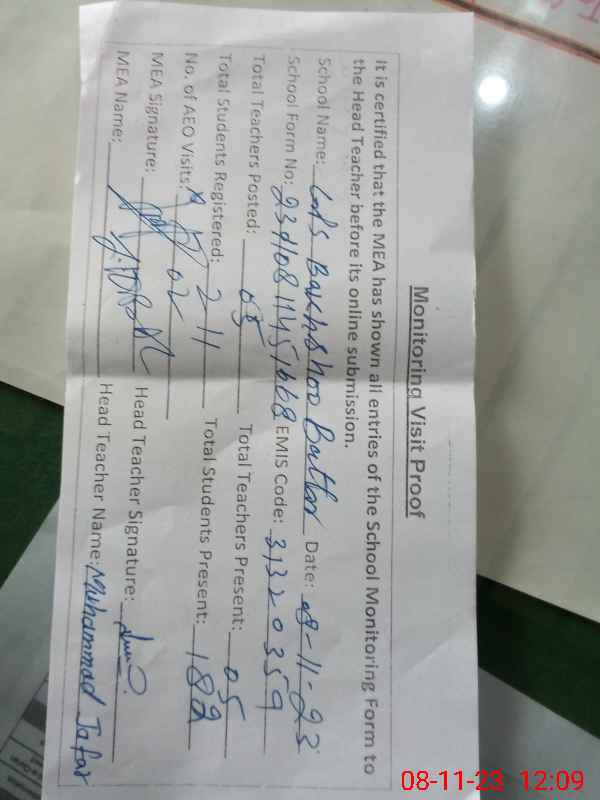 Monitoring Visit Proof
It is certified that the MEA has shown all entries of the School Monitoring Form to
the Head Teacher before its online submission.
School Name: Bakhshoo Date: 08-11-23
School Form No: EMIS Code: 31320359
Total Teachers Posted: 05 Total Teachers Present: 05
Total Students Registered: 211 Total Students Present: 182
No. of AEO Visits: 02
MEA Signature: Head Teacher Signature:
MEA Name: Head Teacher Name: Muhammad Jafar
08-11-23 12:09